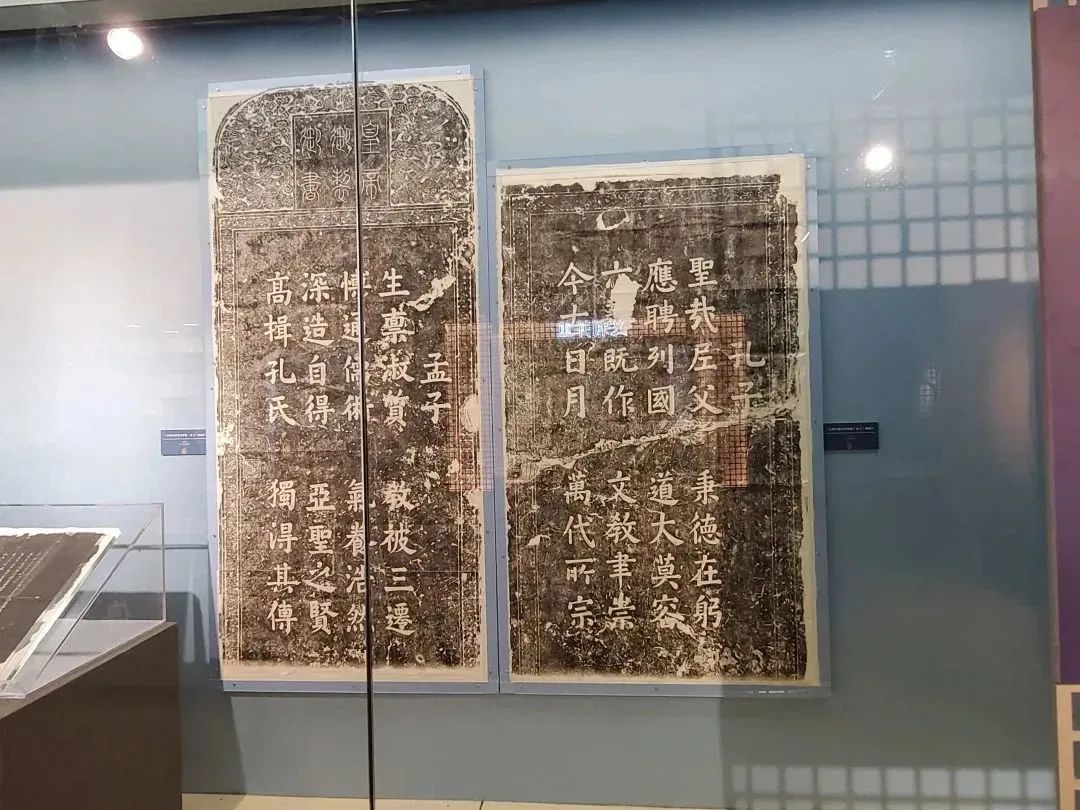 孔子
聖哉尼父 秉德在躬
應聘列國 道大莫容
六既作 文教聿崇
今古日月 萬代所宗
皇帝
御製
御書
孟子
生稟淑質 教被三遷
愽通儒術 氣養浩然
深造自得 亞聖之賢
高揖孔氏 獨得其傳